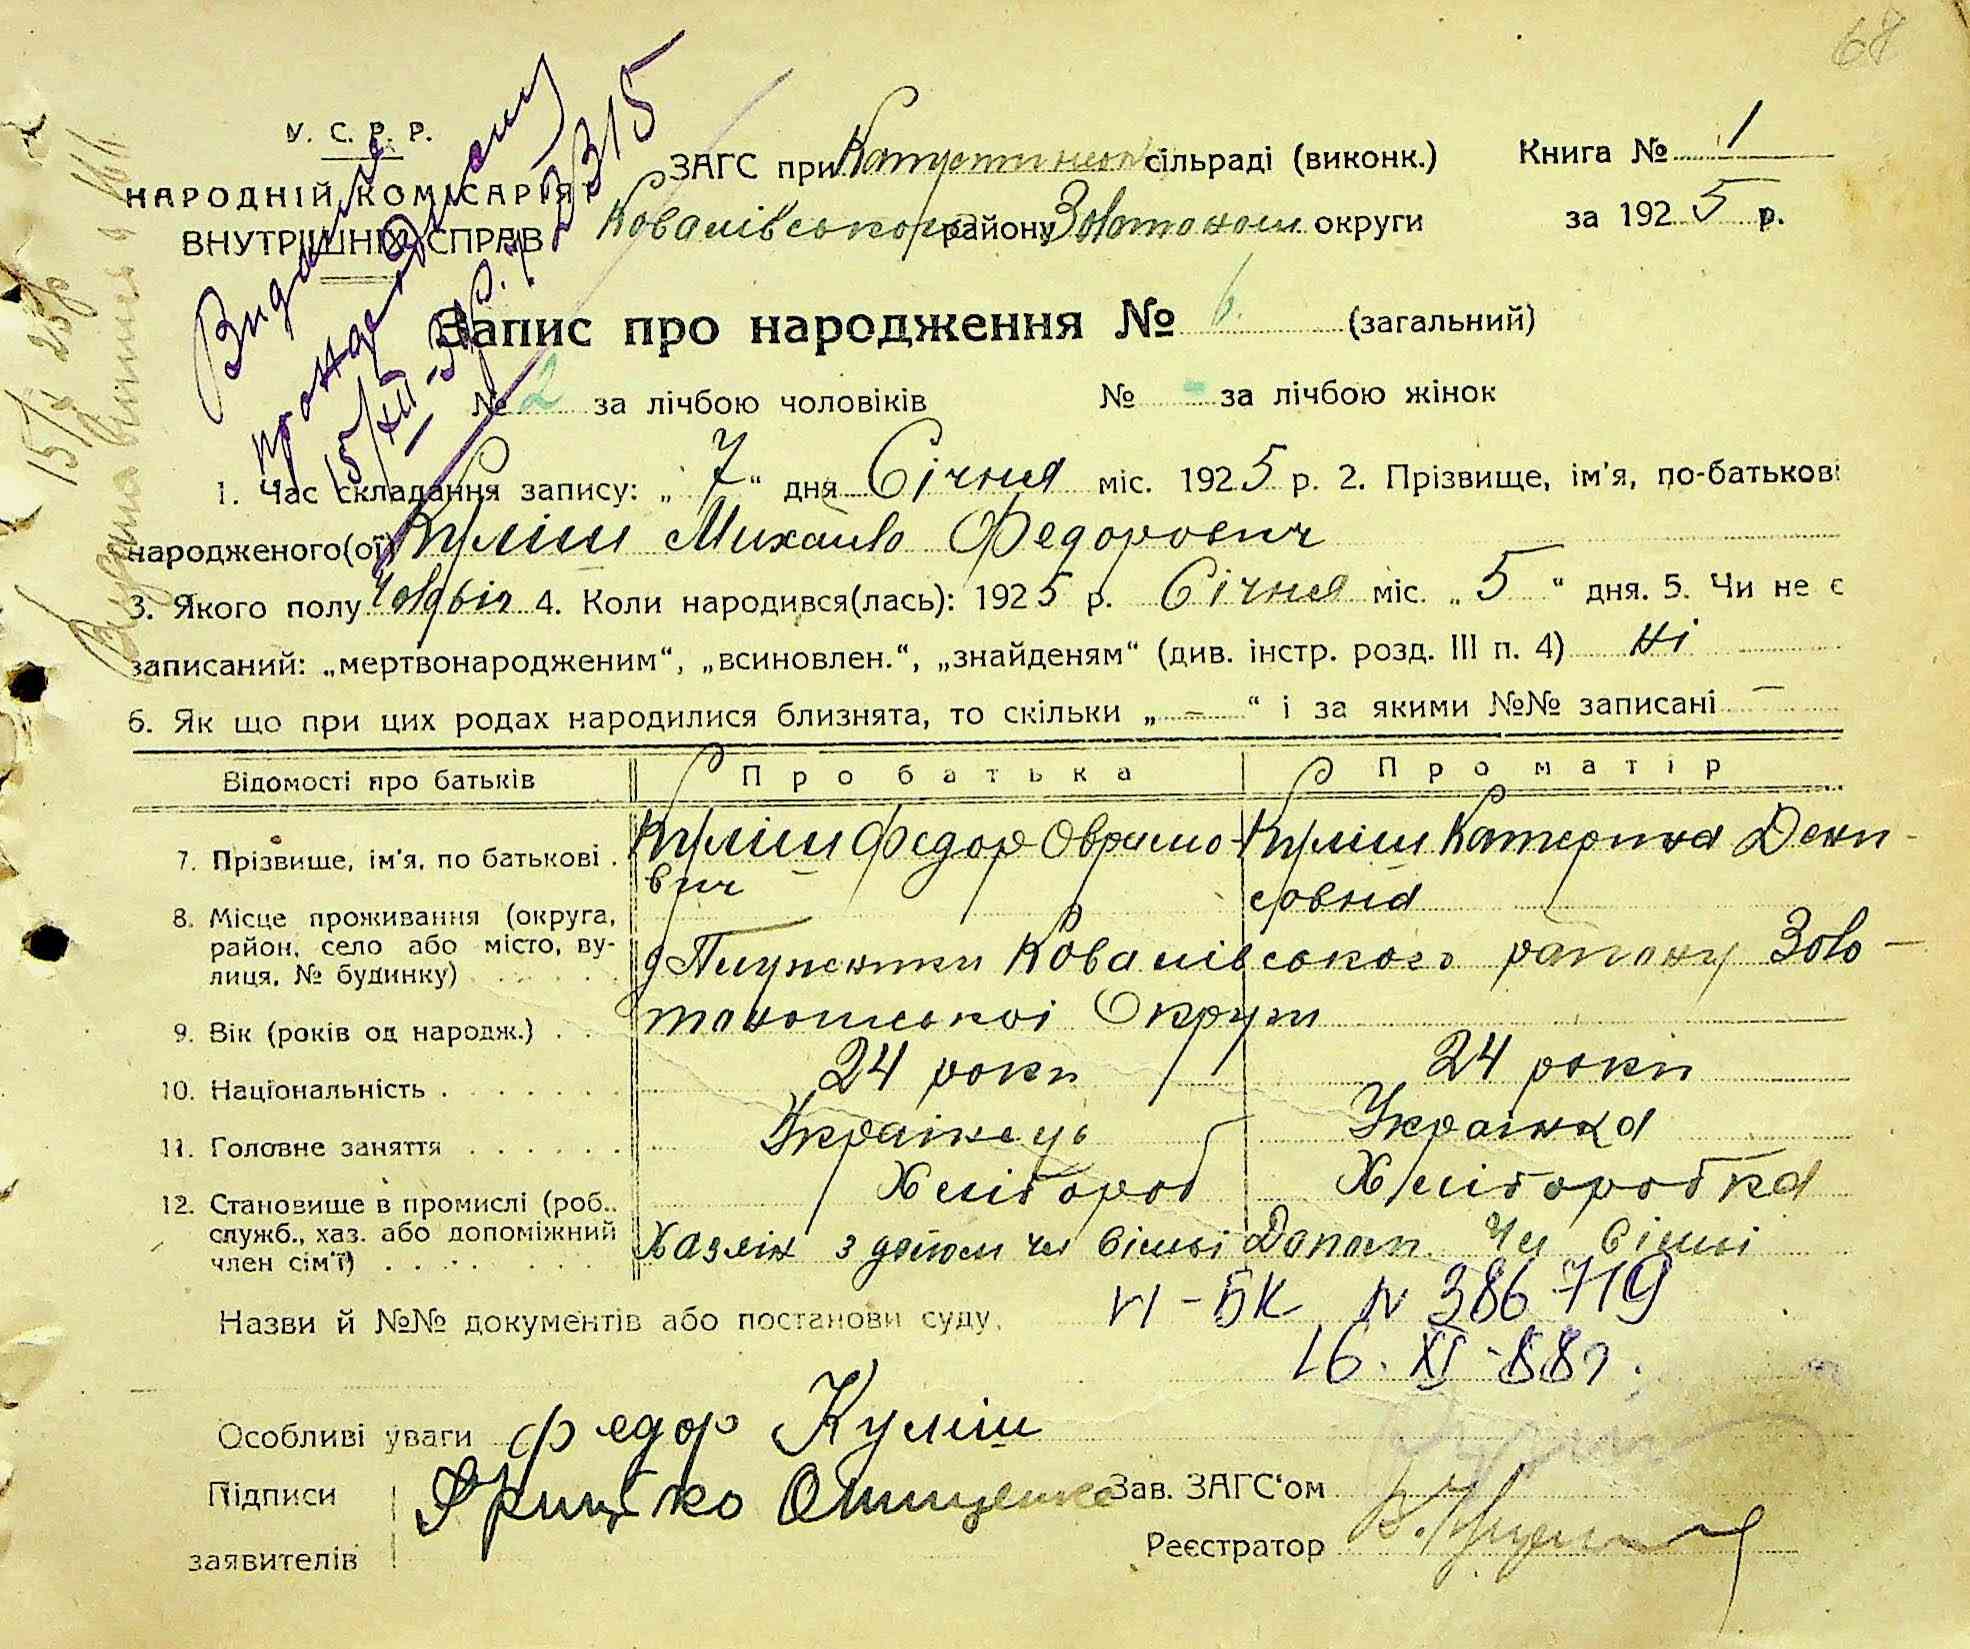 68
У. С. Р. Р.
НАРОДНІЙ КОМІСАРІЯТ
ВНУТРІШНІХ СПРАВ
ЗАГС при сільраді (виконк.)
Ковалівського району Золотонош округи
Книга № 1
за 1925 р.
Запис про народження № 6. (загальний)
№ 2 за лічбою чоловіків № - за лічбою жінок
1. Час складання запису: „ 7 “ дня Січня міс. 1925 р. 2. Прізвище, ім'я, по-батькові
народженого(ої) Куліш Михайло Федорович
3. Якого полу 4. Коли народився(лась): 1925 р. Січня міс. „ 5 “ дня. 5. Чи не є
записаний: „мертвонародженим“, „всиновлен.“, „знайденям“ (див. інстр. розд. III п. 4) Ні
6. Як що при цих родах народилися близнята, то скільки „ – “ і за якими №№ записані –
Відомості про батьків Про батька Про матір
7. Прізвище, ім'я, по батькові . Куліш Федор Оврамо- Куліш Катерина Дени-
вич совна
8. Місце проживання (округа,
район, село або місто, ву-
лиця, № будинку) Ковалівського району Золо-
тоношської Округи
9. Вік (років од народж.) . . 24 роки 24 роки
10. Національність . Українець Українка
11. Головне заняття Хлібороб Хліборобка
12. Становище в промислі (роб..
служб., хаз. або допоміжний
член сім'ї) Хазяін з допом чл сімьі Допом. Чл сімьі
Назви й №№ документів або постанови суду. VI-БК N 386719
16. XI-88г.
Особливі уваги Федор Куліш
Підписи
заявителів
Зав. ЗАГС'ом
Реєстратор